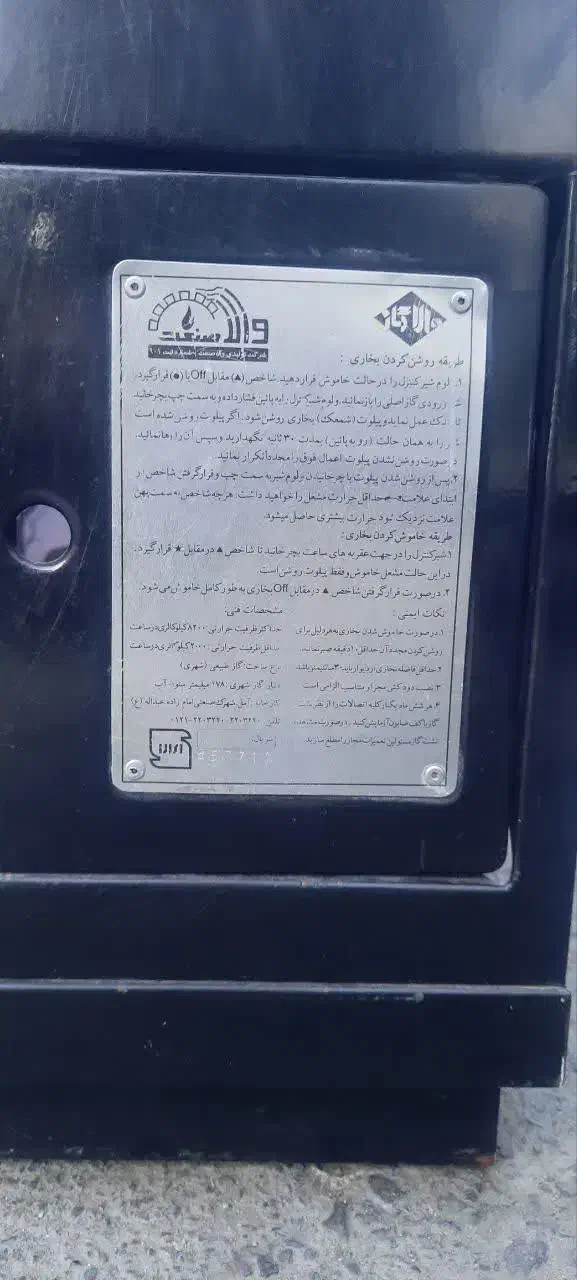 والا صنعت
والا گاز
طریقه روشن کردن بخاری :
۱. ولوم شیر کنترل را در حالت خاموش قرار دهید. شاخص (▲) مقابل Off یا (●) قرار گیرد.
ورودی گاز اصلی را باز نمائید. ولوم شیر کنترل را به پائین فشار داده و به سمت چپ بچرخانید
تا فندک عمل نماید و پیلوت (شمعک) بخاری روشن شود. اگر پیلوت روشن شده است
را به همان حالت (رو به پائین) بمدت ۳۰ ثانیه نگهدارید و سپس آن را رها نمائید.
در صورت روشن نشدن پیلوت اعمال فوق را مجدداً تکرار نمائید.
۲. پس از روشن شدن پیلوت با چرخانیدن ولوم شیر به سمت چپ و قرار گرفتن شاخص در
ابتدای علامت حداقل حرارت مشعل را خواهید داشت. هر چه شاخص به سمت پهن
علامت نزدیک شود حرارت بیشتری حاصل میشود.
طریقه خاموش کردن بخاری :
۱. شیر کنترل را در جهت عقربه های ساعت بچرخانید تا شاخص ▲ در مقابل ★ قرار گیرد.
در این حالت مشعل خاموش و فقط پیلوت روشن است.
۲. در صورت قرار گرفتن شاخص ▲ در مقابل Off بخاری به طور کامل خاموش می شود.
نکات ایمنی :
۱. در صورت خاموش شدن بخاری به هر دلیل برای
روشن کردن مجدد آن حداقل ۱۰ دقیقه صبر نمائید.
۲. حداقل فاصله بخاری از دیوار باید ۳۰ سانتیمتر باشد
۳. نصب دودکش مجزا و مناسب الزامی است
۴. هر شش ماه یکبار کلیه اتصالات را از نظر نشت
گاز با کف صابون آزمایش کنید. در صورت مشاهده
نشت گاز مسئولین تعمیرات مجاز را مطلع سازید.
مشخصات فنی :
حداکثر ظرفیت حرارتی : ۸۲۰۰ کیلو کالری در ساعت
حداقل ظرفیت حرارتی : ۲۰۰۰ کیلو کالری در ساعت
نوع سوخت : گاز طبیعی (شهری)
فشار گاز شهری : ۱۷۸ میلیمتر ستون آب
کارخانه : آمل شهرک صنعتی امام زاده عبداله (ع)
تلفن : ۲۲۰۳۲۹۰-۲۲۰۳۲۲۰-۰۱۲۱
سریال :